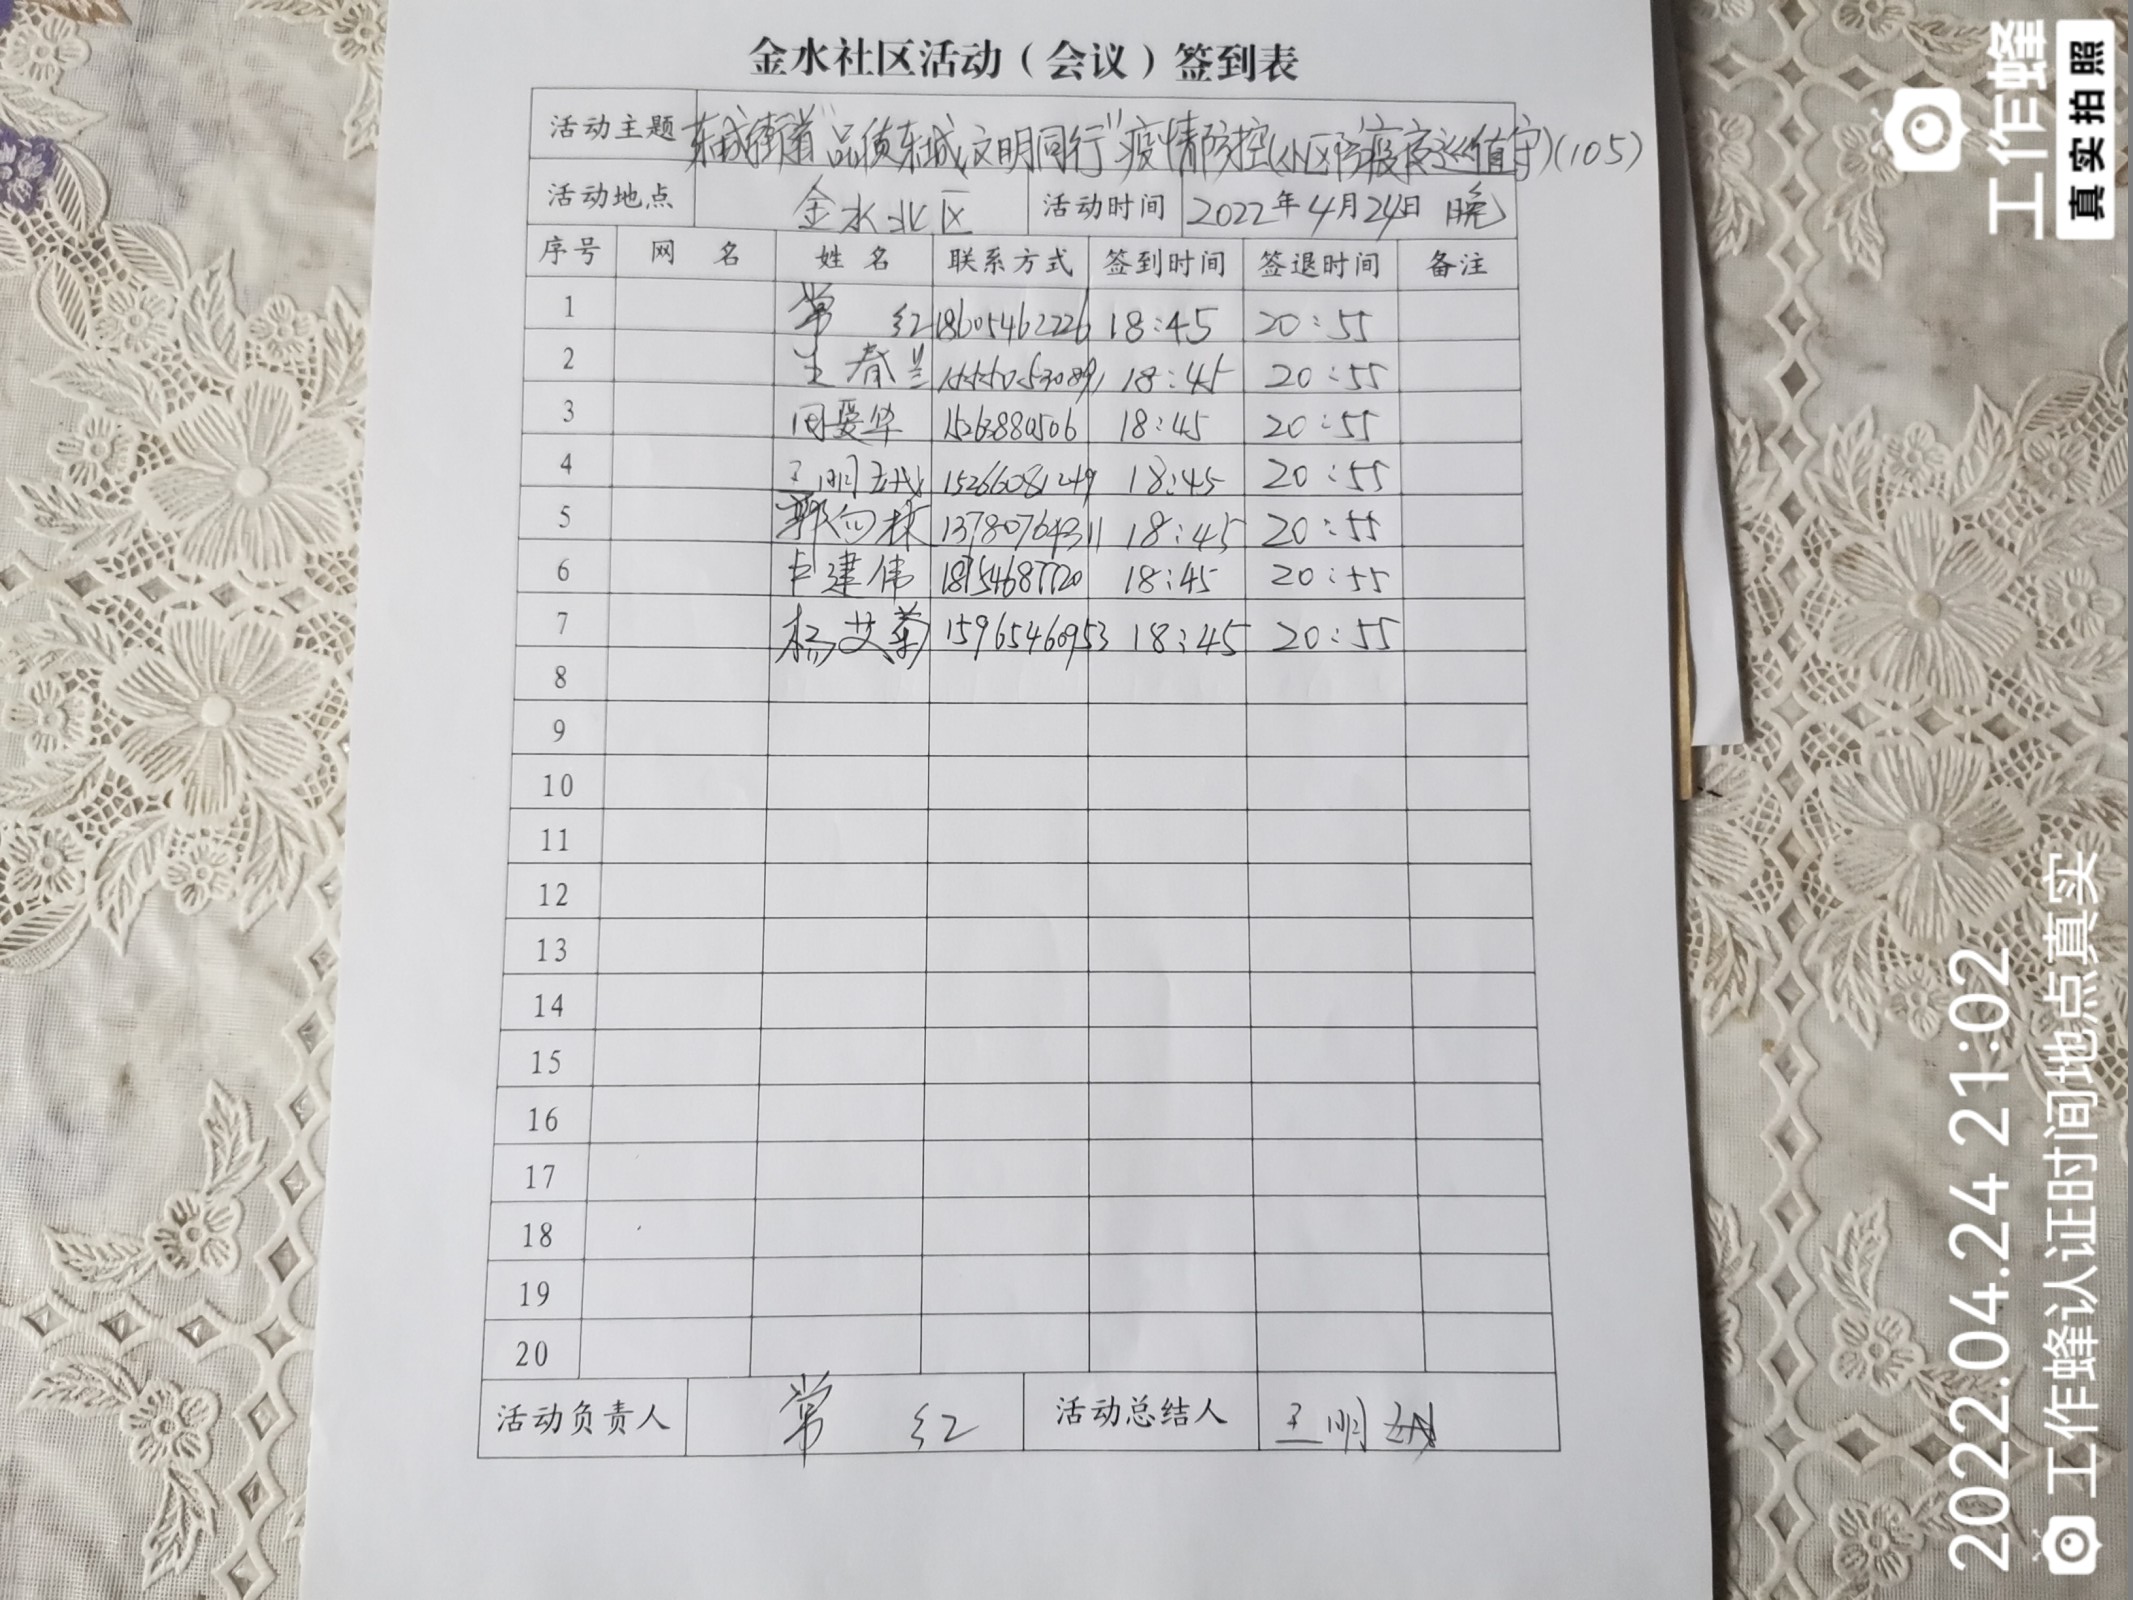 金水社区活动（会议）签到表
活动主题 东城街道"品质东城文明同行"疫情防控(小区防疫夜巡值守)(105)
活动地点 金水北区 活动时间 2022年4月24日 晚
序号 网 名 姓 名 联系方式 签到时间 签退时间 备注
1 常 红 18605462226 18:45 20:55
2 生春兰 18:45 20:55
3 周爱华 18:45 20:55
4 王明 15266081249 18:45 20:55
5 郭向林 13780764311 18:45 20:55
6 卢建伟 18:45 20:55
7 杨艾菊 15965460953 18:45 20:55
8
9
10
11
12
13
14
15
16
17
18
19
20
活动负责人 常 红 活动总结人 王明
工作蜂
真实拍照
2022.04.24 21:02
工作蜂认证时间地点真实